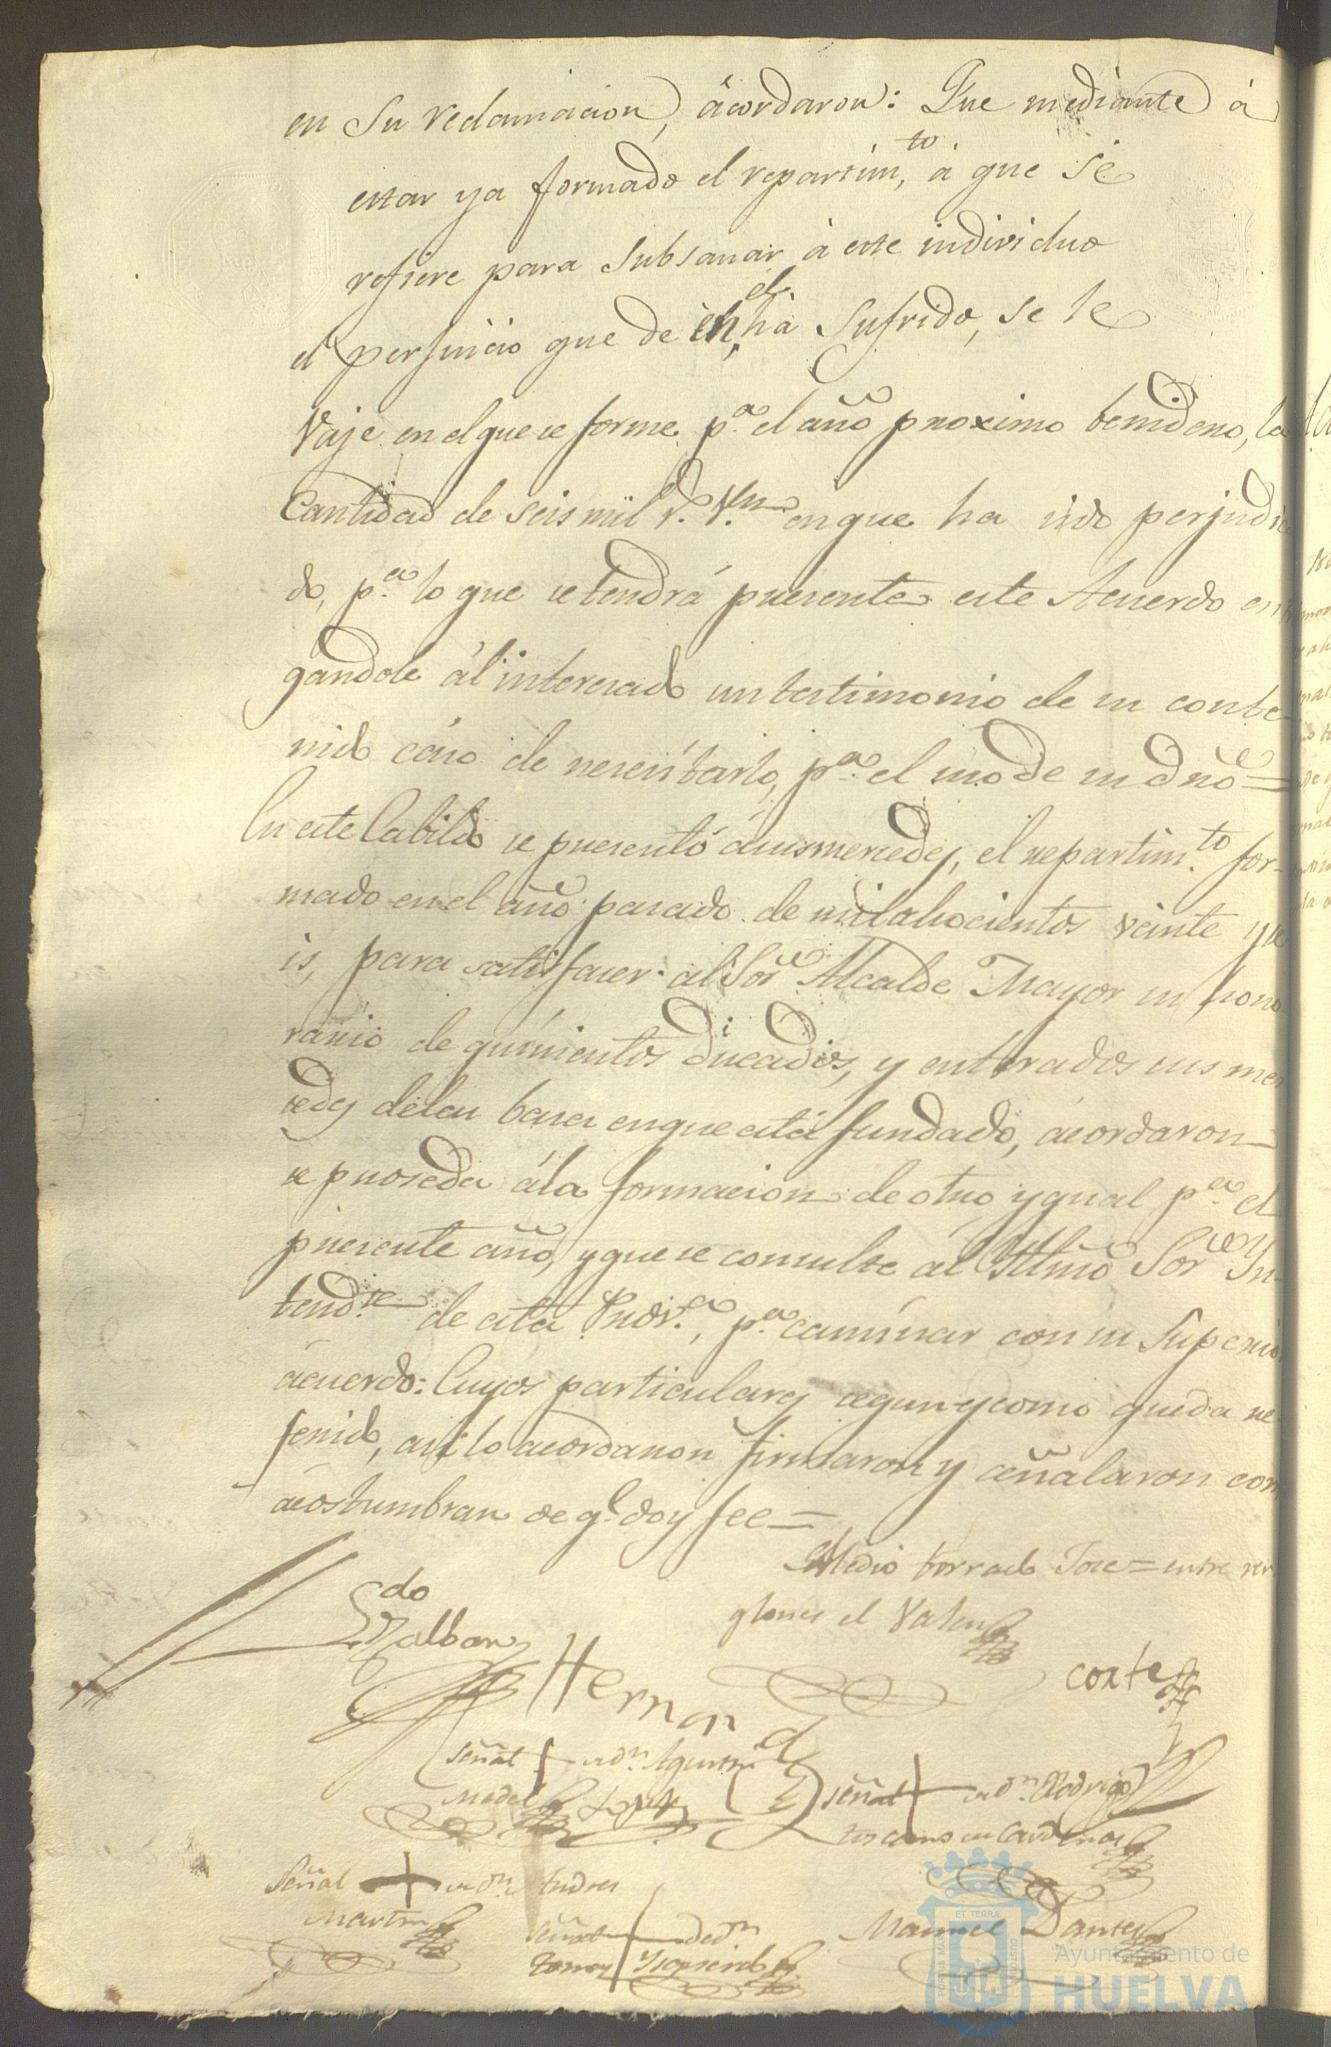 en Su reclamacion, acordaron: Que mediante á
estar ya formado el repartim.to, á que se
refiere para subsanar á este individuo
el perjuicio que de él, ha Sufrido, se le
Vaje en el que se forme p.a el año proximo benidero, la
Cantidad de Seis mil r.s V.n en que ha sido perjudica
do, p.a lo que se tendrá presente este Acuerdo entre
gandole ál interesado un testimonio de su conte-
nido cáso de nesesitarlo, p.a el uso de su dro=
En este Cabildo se presentó á sus mercedes, el repartim.to for-
mado en el año pasado de mil ochocientos veinte y se
is, para satisfacer al Sor Alcalde Mayor su hono
rario de quinientos Ducados, y enterados sus mer
cedes de las bases en que está fundado, ácordaron
se proseda á la formacion de otro ygual p.a el
presente año, y que se consulte al Yllmo Sor Yn-
tend.te de esta Prov.a, p.a caminar con su Superior
ácuerdo: Cuyos particulares segun y como queda re-
ferido, asi lo acordaron firmaron y señalaron como
ácostumbran de q.e doy fee=
Medio borrado Jose = entre ren
glones el Vale
Ldo
Zalban
Hernand
Corte
Señal + de dn Agustin
Medel
Lopez
Señal + de dn Rodrigo
toscano de Cardenas
Señal + de dn Andres
Martin
Señal + de dn
tomas Ysquierdo
Manuel Dantes
ET TERRÆ
Ayuntamiento de
HUELVA